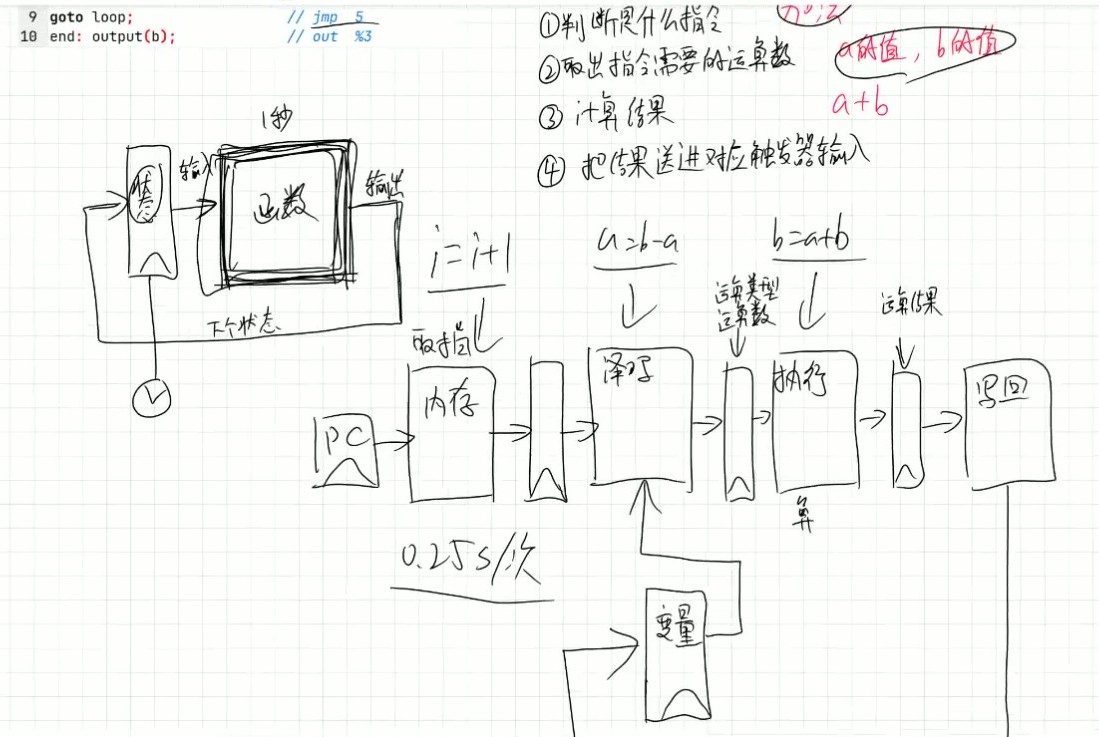 9 goto loop; // jmp 5
10 end: output(b); // out %3
①判断是什么指令
②取出指令需要的运算数
③计算结果
④把结果送进对应触发器输入
a的值，b的值
a+b
1秒
状态
输入
函数
输出
下个状态
i=i+1
a=b-a
b=a+b
取指
运算类型
运算数
运算结果
PC
内存
译码
执行
写回
算
0.25s/次
变量